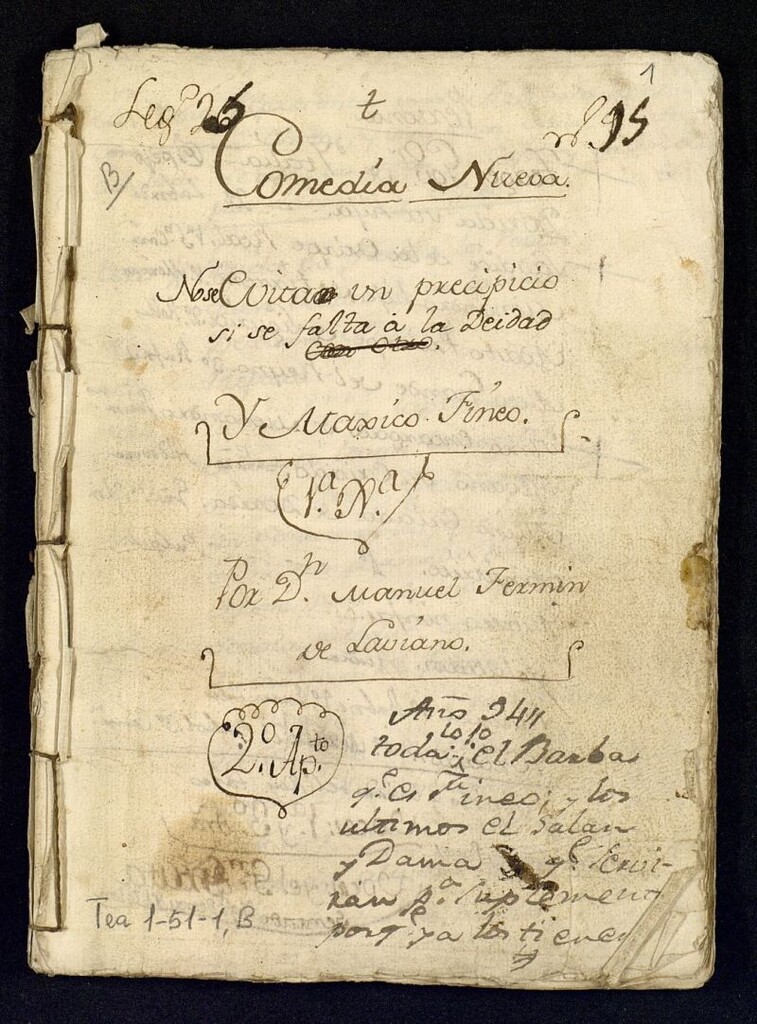 1
t
Leg.º 26
nº. 15
B/
Comedia Nueva.
No se Evita un precipicio
si se falta à la Deidad
Y Maxico Fineo.
1.ª N.ª
Por D.n Manuel Fermin
de Laviano.
2.º Ap.to
Año
toda el Barba
q.e es Fineo; y los
ultimos el Galan
y Dama q.e servi-
ran p.a suplement
porq.e ya los tiene
Tea 1-51-1, B